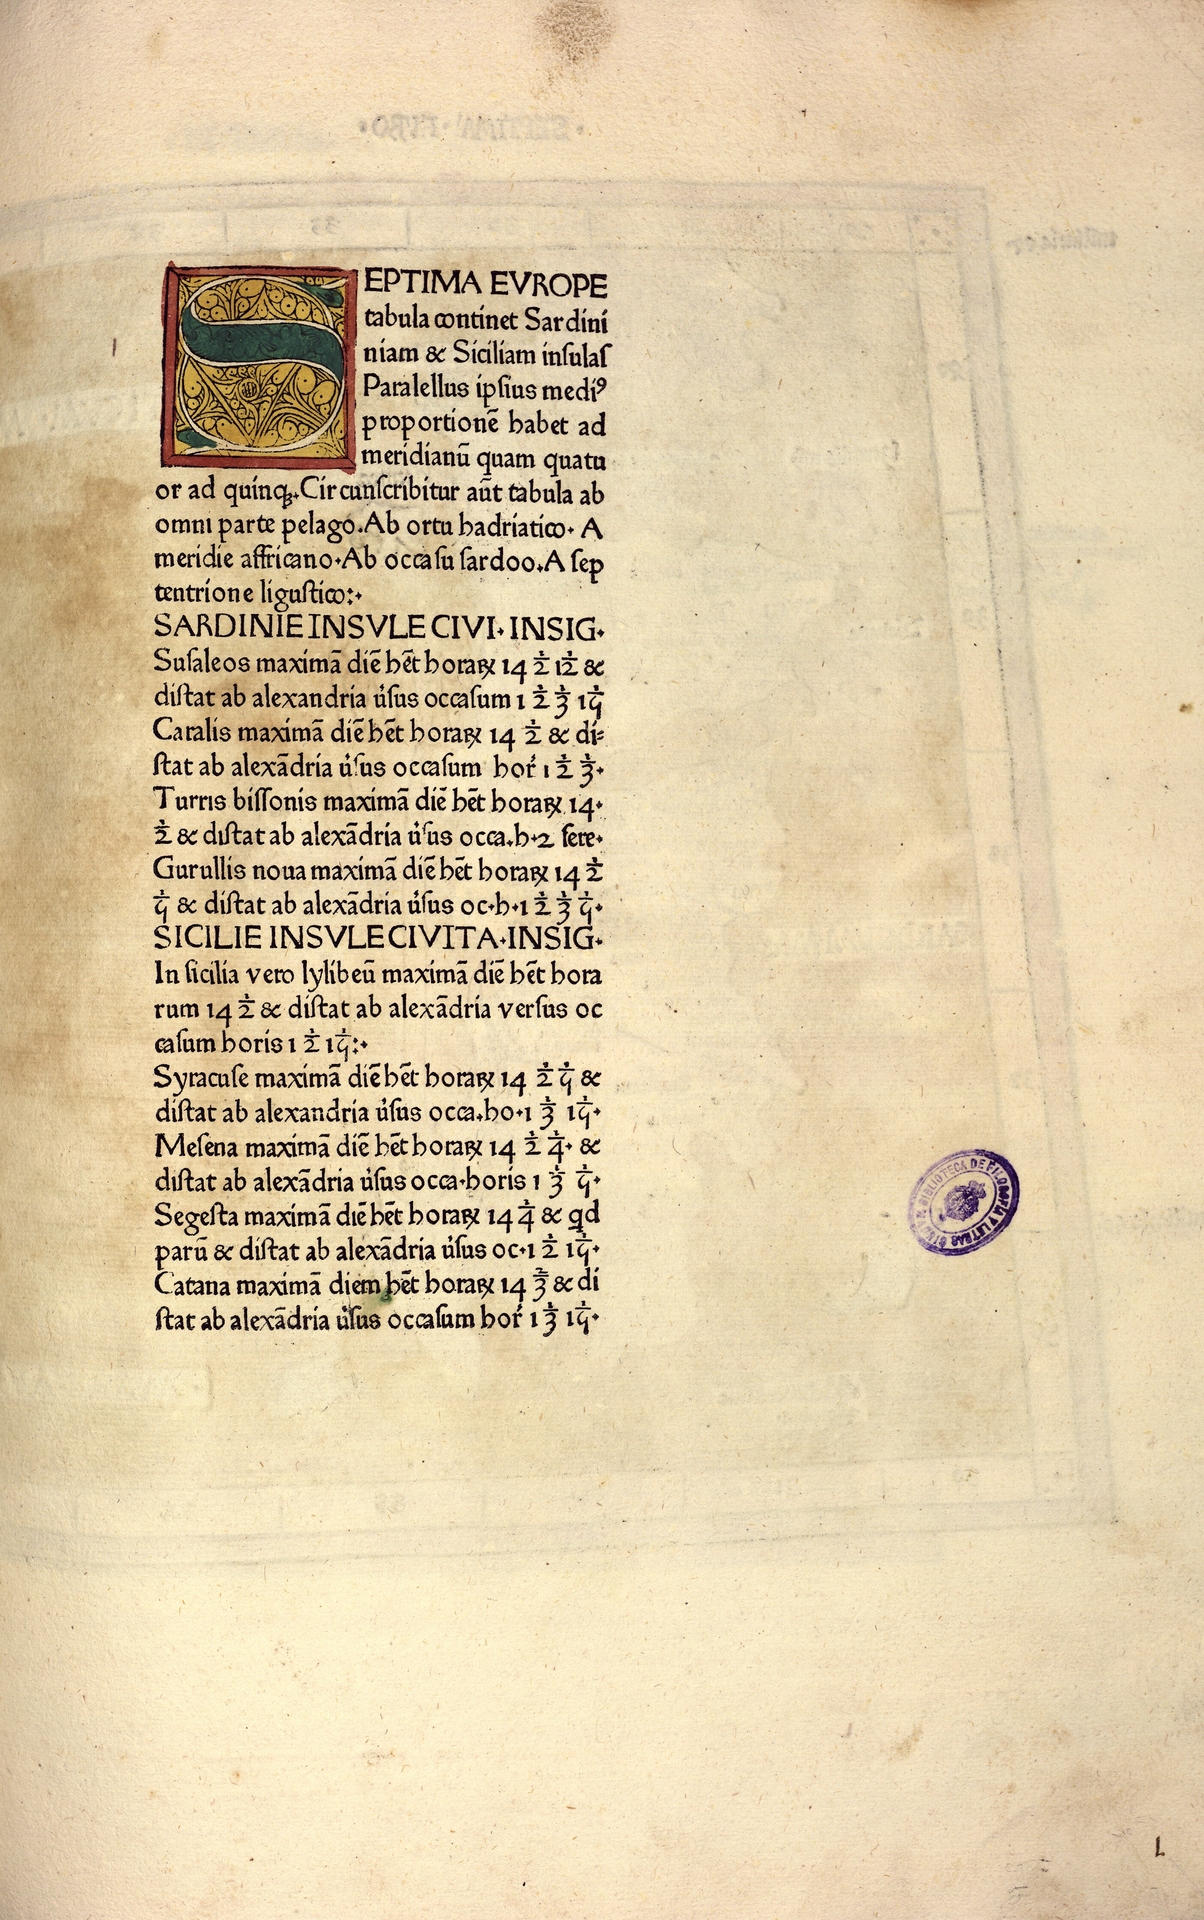 SEPTIMA EVROPE
tabula continet Sardini
niam & Siciliam inſulaſ
Paralellus ipſius mediꝰ
proportionē habet ad
meridianū quam quatu
or ad quinqꝫ. Circunſcribitur aūt tabula ab
omni parte pelago. Ab ortu hadriatico. A
meridie affricano. Ab occaſu ſardoo. A ſep
tentrione liguſtico:.
SARDINIE INSVLE CIVI. INSIG.
Suſaleos maximā diē hēt horaꝝ 14 1/2 1/12 &
diſtat ab alexandria u̓ſus occaſum 1 1/2 1/3 1/15
Caralis maximā diē hēt horaꝝ 14 1/2 & di=
ſtat ab alexādria u̓ſus occaſum hor̓ 1 1/2 1/3.
Turris biſſonis maximā diē hēt horaꝝ 14.
1/2 & diſtat ab alexādria u̓ſus occa. h. 2 fere.
Gurullis noua maximā diē hēt horaꝝ 14 1/2
1/5 & diſtat ab alexādria u̓ſus oc. h. 1 1/2 1/3 1/5.
SICILIE INSVLE CIVITA. INSIG.
In ſicilia vero lylibeū maximā diē hēt hora
rum 14 1/2 & diſtat ab alexādria verſus oc
caſum horis 1 1/2 1/15:.
Syracuſe maximā diē hēt horaꝝ 14 1/2 1/5 &
diſtat ab alexandria u̓ſus occa. ho. 1 1/3 1/15.
Meſena maximā diē hēt horaꝝ 14 1/2 1/4. &
diſtat ab alexādria u̓ſus occa. horis 1 1/3 1/5.
Segeſta maximā diē hēt horaꝝ 14 1/4 & qd
parū & diſtat ab alexādria u̓ſus oc. 1 1/2 1/15.
Catana maximā diem hēt horaꝝ 14 2/3 & di
ſtat ab alexādria u̓ſus occaſum hor̓ 1 1/3 1/15.
BIBLIOTECA DE FILOSOFIA Y LETRAS